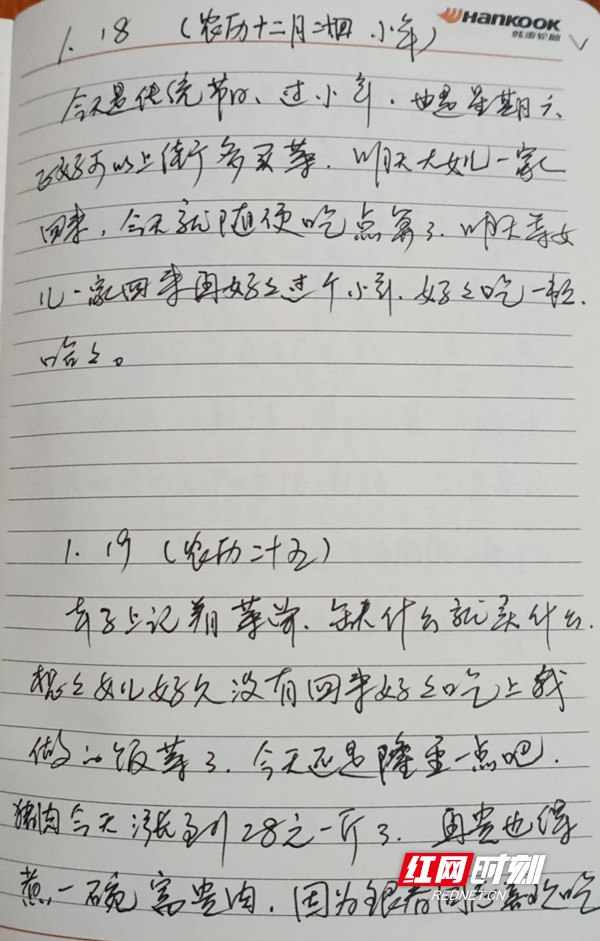 HANKOOK
韩泰轮胎
1.18 (农历十二月二十四 小年)
今天是传统节日、过小年.也是星期六、
正好可以上街多买菜.明天大女儿一家
回来,今天就随便吃点算了.明天等女
儿一家回来再好好过个小年.好好吃一
哈哈。
1.19 (农历二十五)
上记 菜 、缺什么就买什么.
想想女儿好久没有回来好好吃上我
做的饭菜了.今天还是隆重一点吧.
猪肉今天涨到28元一斤了.再贵也得
煮一碗富贵肉.因为 喜欢吃
红网时刻
REDNET.CN